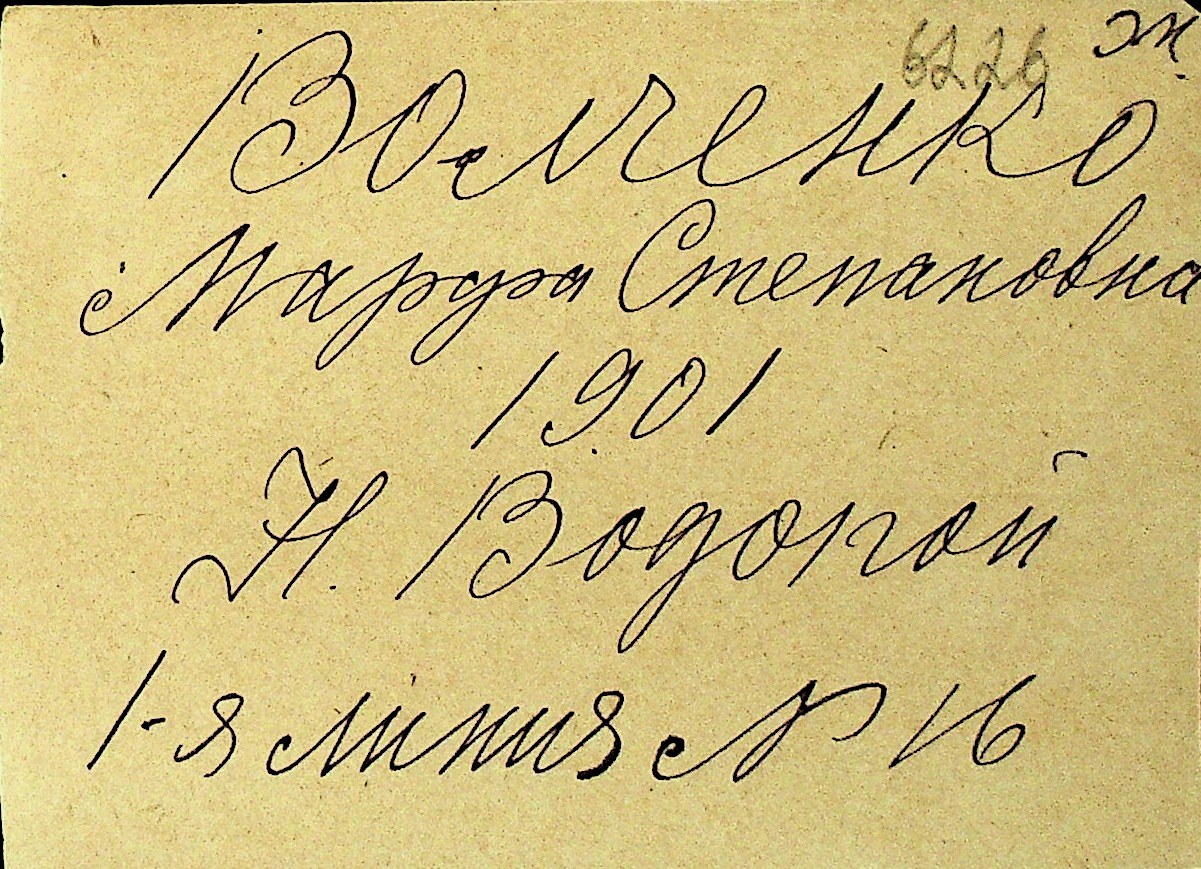 6226 ж.
Волченко
Марфа Степановна
1901
Н. Водопой
1-я линия № 16